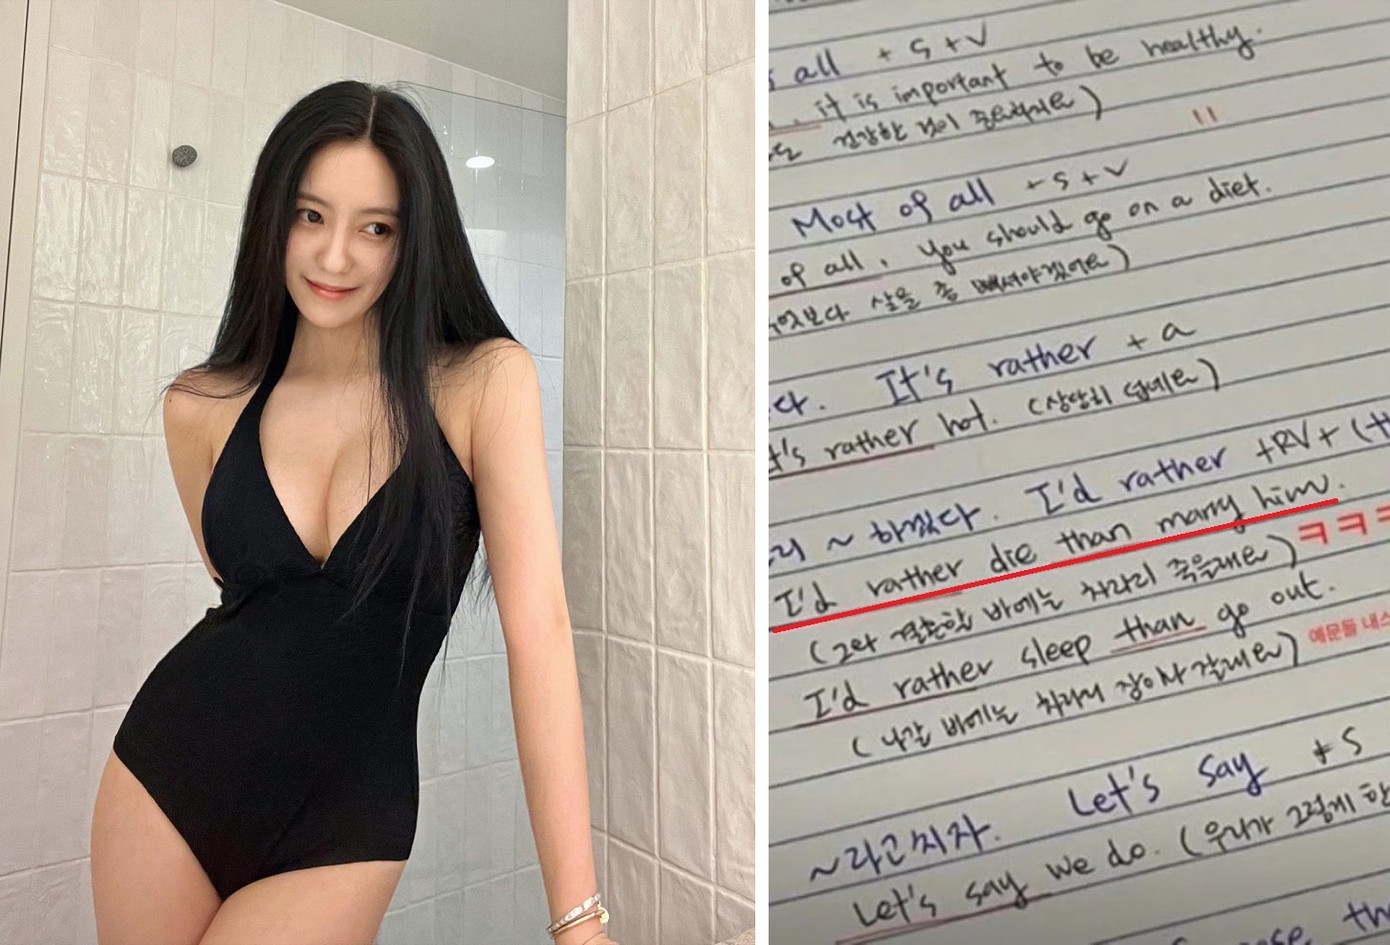 all + S + V
it is important to be healthy.
건강한 것이 중요해요)
"
Most of all + S + V
of all, you should go on a diet.
보다 살을 좀 빼셔야겠어요)
다. It's rather + a
t's rather hot. (상당히 덥네요)
리 ~ 하겠다. I'd rather +RV+ (th
I'd rather die than marry him.
(그와 결혼할 바에는 차라리 죽을래요) ㅋㅋㅋ
I'd rather sleep than go out.
예문들 내스
(나갈 바에는 차라리 잠이나 잘래요)
~라고 치자. Let's say + S
Let's say we do. (우리가 그렇게 한